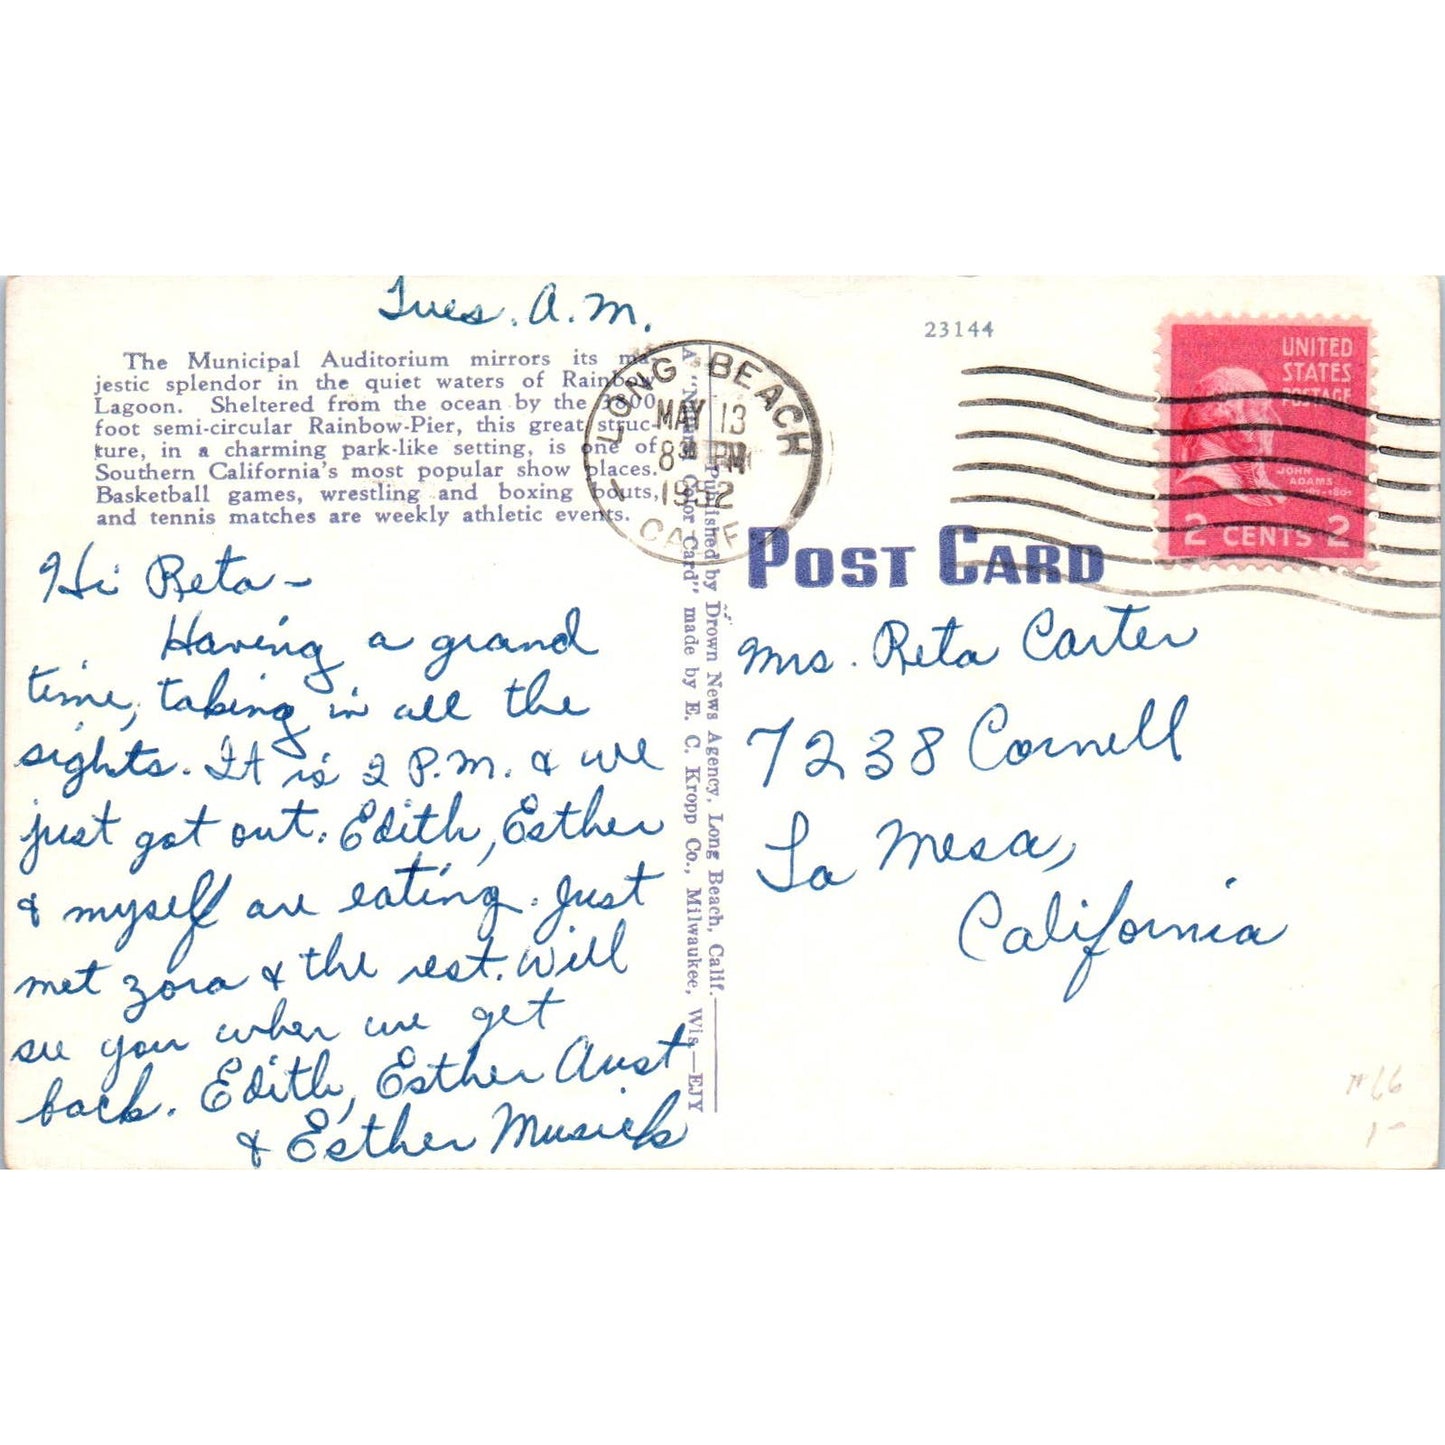 Tues. A.M.
The Municipal Auditorium mirrors its ma-
jestic splendor in the quiet waters of Rainbow
Lagoon. Sheltered from the ocean by the 3800
foot semi-circular Rainbow-Pier, this great struc-
ture, in a charming park-like setting, is one of
Southern California's most popular show places.
Basketball games, wrestling and boxing bouts,
and tennis matches are weekly athletic events.
Hi Reta –
Having a grand
time, taking in all the
sights. It is 2 P.M. & we
just got out. Edith, Esther
& myself are eating. Just
met Zora & the rest. Will
see you when we get
back. Edith, Esther Aust
& Esther Musick
Published by Drown News Agency, Long Beach, Calif.
A "Natural Color Card" made by E. C. Kropp Co., Milwaukee, Wis.—EJY
LONG BEACH
MAY 13
8 30 PM
1952
CALIF
23144
UNITED
STATES
POSTAGE
JOHN
ADAMS
1797-1801
2 CENTS 2
POST CARD
Mrs. Reta Carter
7238 Cornell
La Mesa,
California
1-